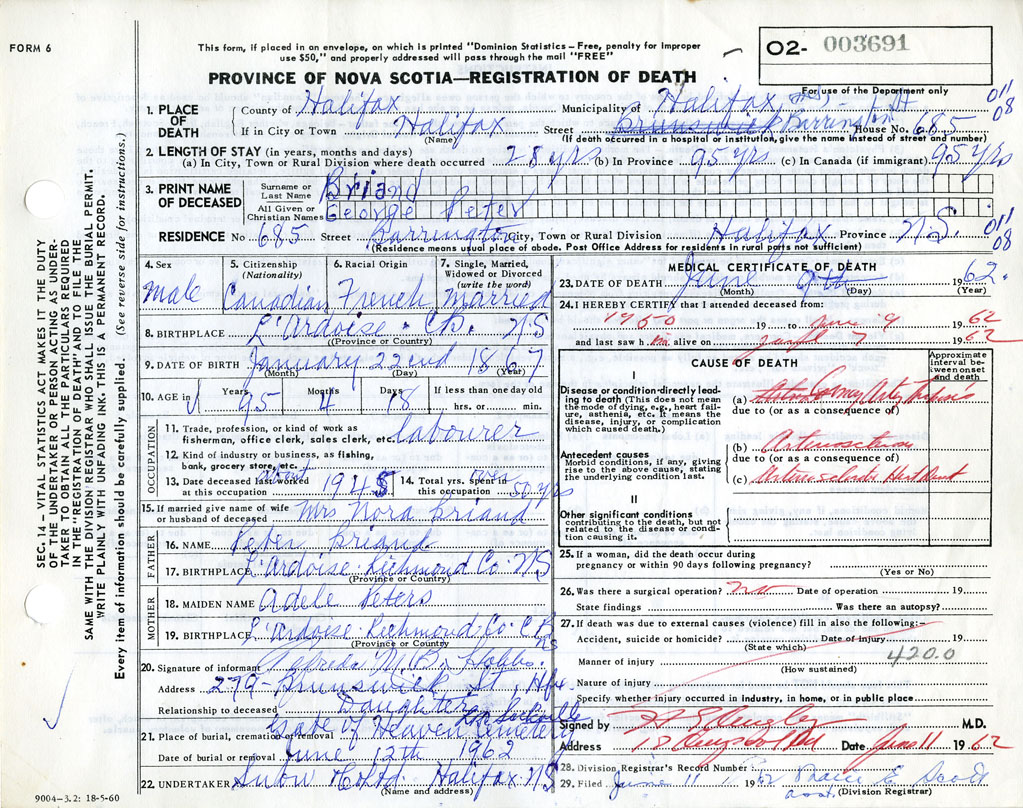 FORM 6
This form, if placed in an envelope, on which is printed "Dominion Statistics – Free, penalty for improper
use $50," and properly addressed will pass through the mail "FREE"
O2- 003691
PROVINCE OF NOVA SCOTIA—REGISTRATION OF DEATH
For use of the Department only
1. PLACE OF DEATH
County of Halifax Municipality of Halifax, NS.
011
08
If in City or Town Halifax Street Brunswick Barrington St House No. 685
(Name) (If death occurred in a hospital or institution, give the name instead of street and number)
2. LENGTH OF STAY (in years, months and days)
(a) In City, Town or Rural Division where death occurred 28 yrs (b) In Province 95 yrs (c) In Canada (if immigrant) 95 yrs
3. PRINT NAME OF DECEASED
Surname or Last Name Briand
All Given or Christian Names George Peter
RESIDENCE No 685 Street Barrington City, Town or Rural Division Halifax Province N.S. 011
08
(Residence means usual place of abode. Post Office Address for residents of rural parts not sufficient)
4. Sex Male
5. Citizenship (Nationality) Canadian
6. Racial Origin French
7. Single, Married, Widowed or Divorced (write the word) Married
8. BIRTHPLACE L'Ardoise. CB. NS
(Province or Country)
9. DATE OF BIRTH January 22nd 1867
(Month) (Day) (Year)
10. AGE in Years 95 Months 4 Days 18 If less than one day old
hrs. or min.
OCCUPATION
11. Trade, profession, or kind of work as
fisherman, office clerk, sales clerk, etc. labourer
12. Kind of industry or business, as fishing,
bank, grocery store, etc.
13. Date deceased last worked
at this occupation 1945
14. Total yrs. spent in
this occupation over 50 yrs
15. If married give name of wife
or husband of deceased Mrs Nora Briand
FATHER
16. NAME Peter Briand
17. BIRTHPLACE L'Ardoise Richmond Co. NS
(Province or Country)
MOTHER
18. MAIDEN NAME Adele Peters
19. BIRTHPLACE L'Ardoise Richmond Co. CB NS
(Province or Country)
20. Signature of informant Alfreda M. B. Hobbs.
Address 279 Brunswick St, Hfx.
Relationship to deceased Daughter
21. Place of burial, cremation or removal Gate of Heaven Cemetery Sackville
Date of burial or removal June 12th 1962
22. UNDERTAKER Snow & Co Ltd Halifax NS
(Name and address)
9004–3.2: 18-5-60
MEDICAL CERTIFICATE OF DEATH
23. DATE OF DEATH June 9th 1962.
(Month) (Day) (Year)
24. I HEREBY CERTIFY that I attended deceased from:
1950 19 to June 9 1962
and last saw him alive on June 7 1962
CAUSE OF DEATH
Approximate interval between onset and death
I
Disease or condition directly leading to death (This does not mean the mode of dying, e.g., heart failure, asthenia, etc. It means the disease, injury, or complication which caused death.)
(a) Coronary
due to (or as a consequence of)
Antecedent causes
Morbid conditions, if any, giving rise to the above cause, stating the underlying condition last.
(b)
due to (or as a consequence of)
(c) Heart
II
Other significant conditions
contributing to the death, but not related to the disease or condition causing it.
25. If a woman, did the death occur during
pregnancy or within 90 days following pregnancy?
(Yes or No)
26. Was there a surgical operation? No Date of operation 19
State findings Was there an autopsy?
27. If death was due to external causes (violence) fill in also the following:–
Accident, suicide or homicide? Date of injury 19
(State which)
420.0
Manner of injury
(How sustained)
Nature of injury
Specify whether injury occurred in industry, in home, or in public place
Signed by M.D.
Address Date June 11 1962
28. Division Registrar's Record Number
29. Filed June 11 1962
asst. (Division Registrar)
SEC. 14 – VITAL STATISTICS ACT MAKES IT THE DUTY
OF THE UNDERTAKER OR PERSON ACTING AS UNDER-
TAKER TO OBTAIN ALL THE PARTICULARS REQUIRED
IN THE "REGISTRATION OF DEATH" AND TO FILE THE
SAME WITH THE DIVISION REGISTRAR WHO SHALL ISSUE THE BURIAL PERMIT.
WRITE PLAINLY WITH UNFADING INK. THIS IS A PERMANENT RECORD.
Every item of information should be carefully supplied. (See reverse side for instructions.)